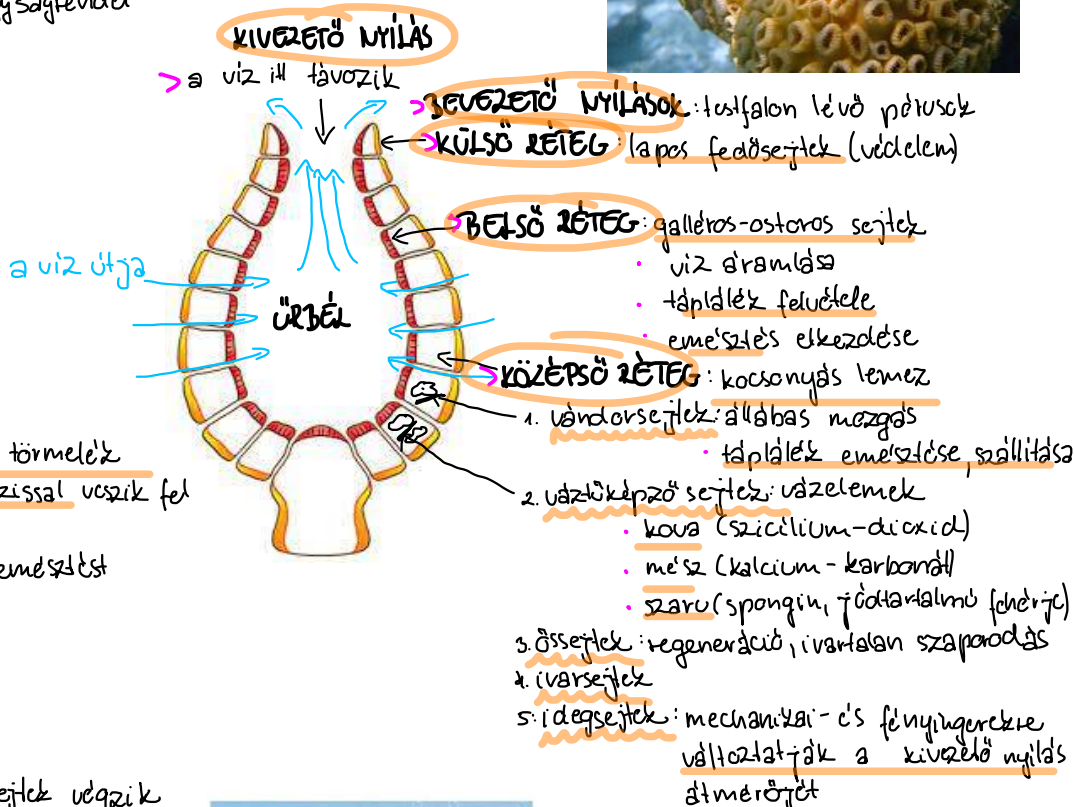 KIVEZETŐ NYÍLÁS
> a víz itt távozik
> BEVEZETŐ NYÍLÁSOK: testfalon lévő pórusok
> KÜLSŐ RÉTEG: lapos fedősejtek (védelem)
> BELSŐ RÉTEG: galléros-ostoros sejtek
• víz áramlása
• táplálék felvétele
• emésztés elkezdése
a víz útja
ŰRBÉL
> KÖZÉPSŐ RÉTEG: kocsonyás lemez
1. vándorsejtek: állábas mozgás
• táplálék emésztése, szállítása
2. váztűképző sejtek: vázelemek
• kova (szicílium-dioxid)
• mész (kalcium-karbonát)
• szaru (spongin, jódtartalmú fehérje)
3. őssejtek: regeneráció, ivartalan szaporodás
4. ivarsejtek
5. idegsejtek: mechanikai- és fényingerekre
változtatják a kivezető nyílás
átmérőjét
törmelék
veszik fel
emésztést
végzik